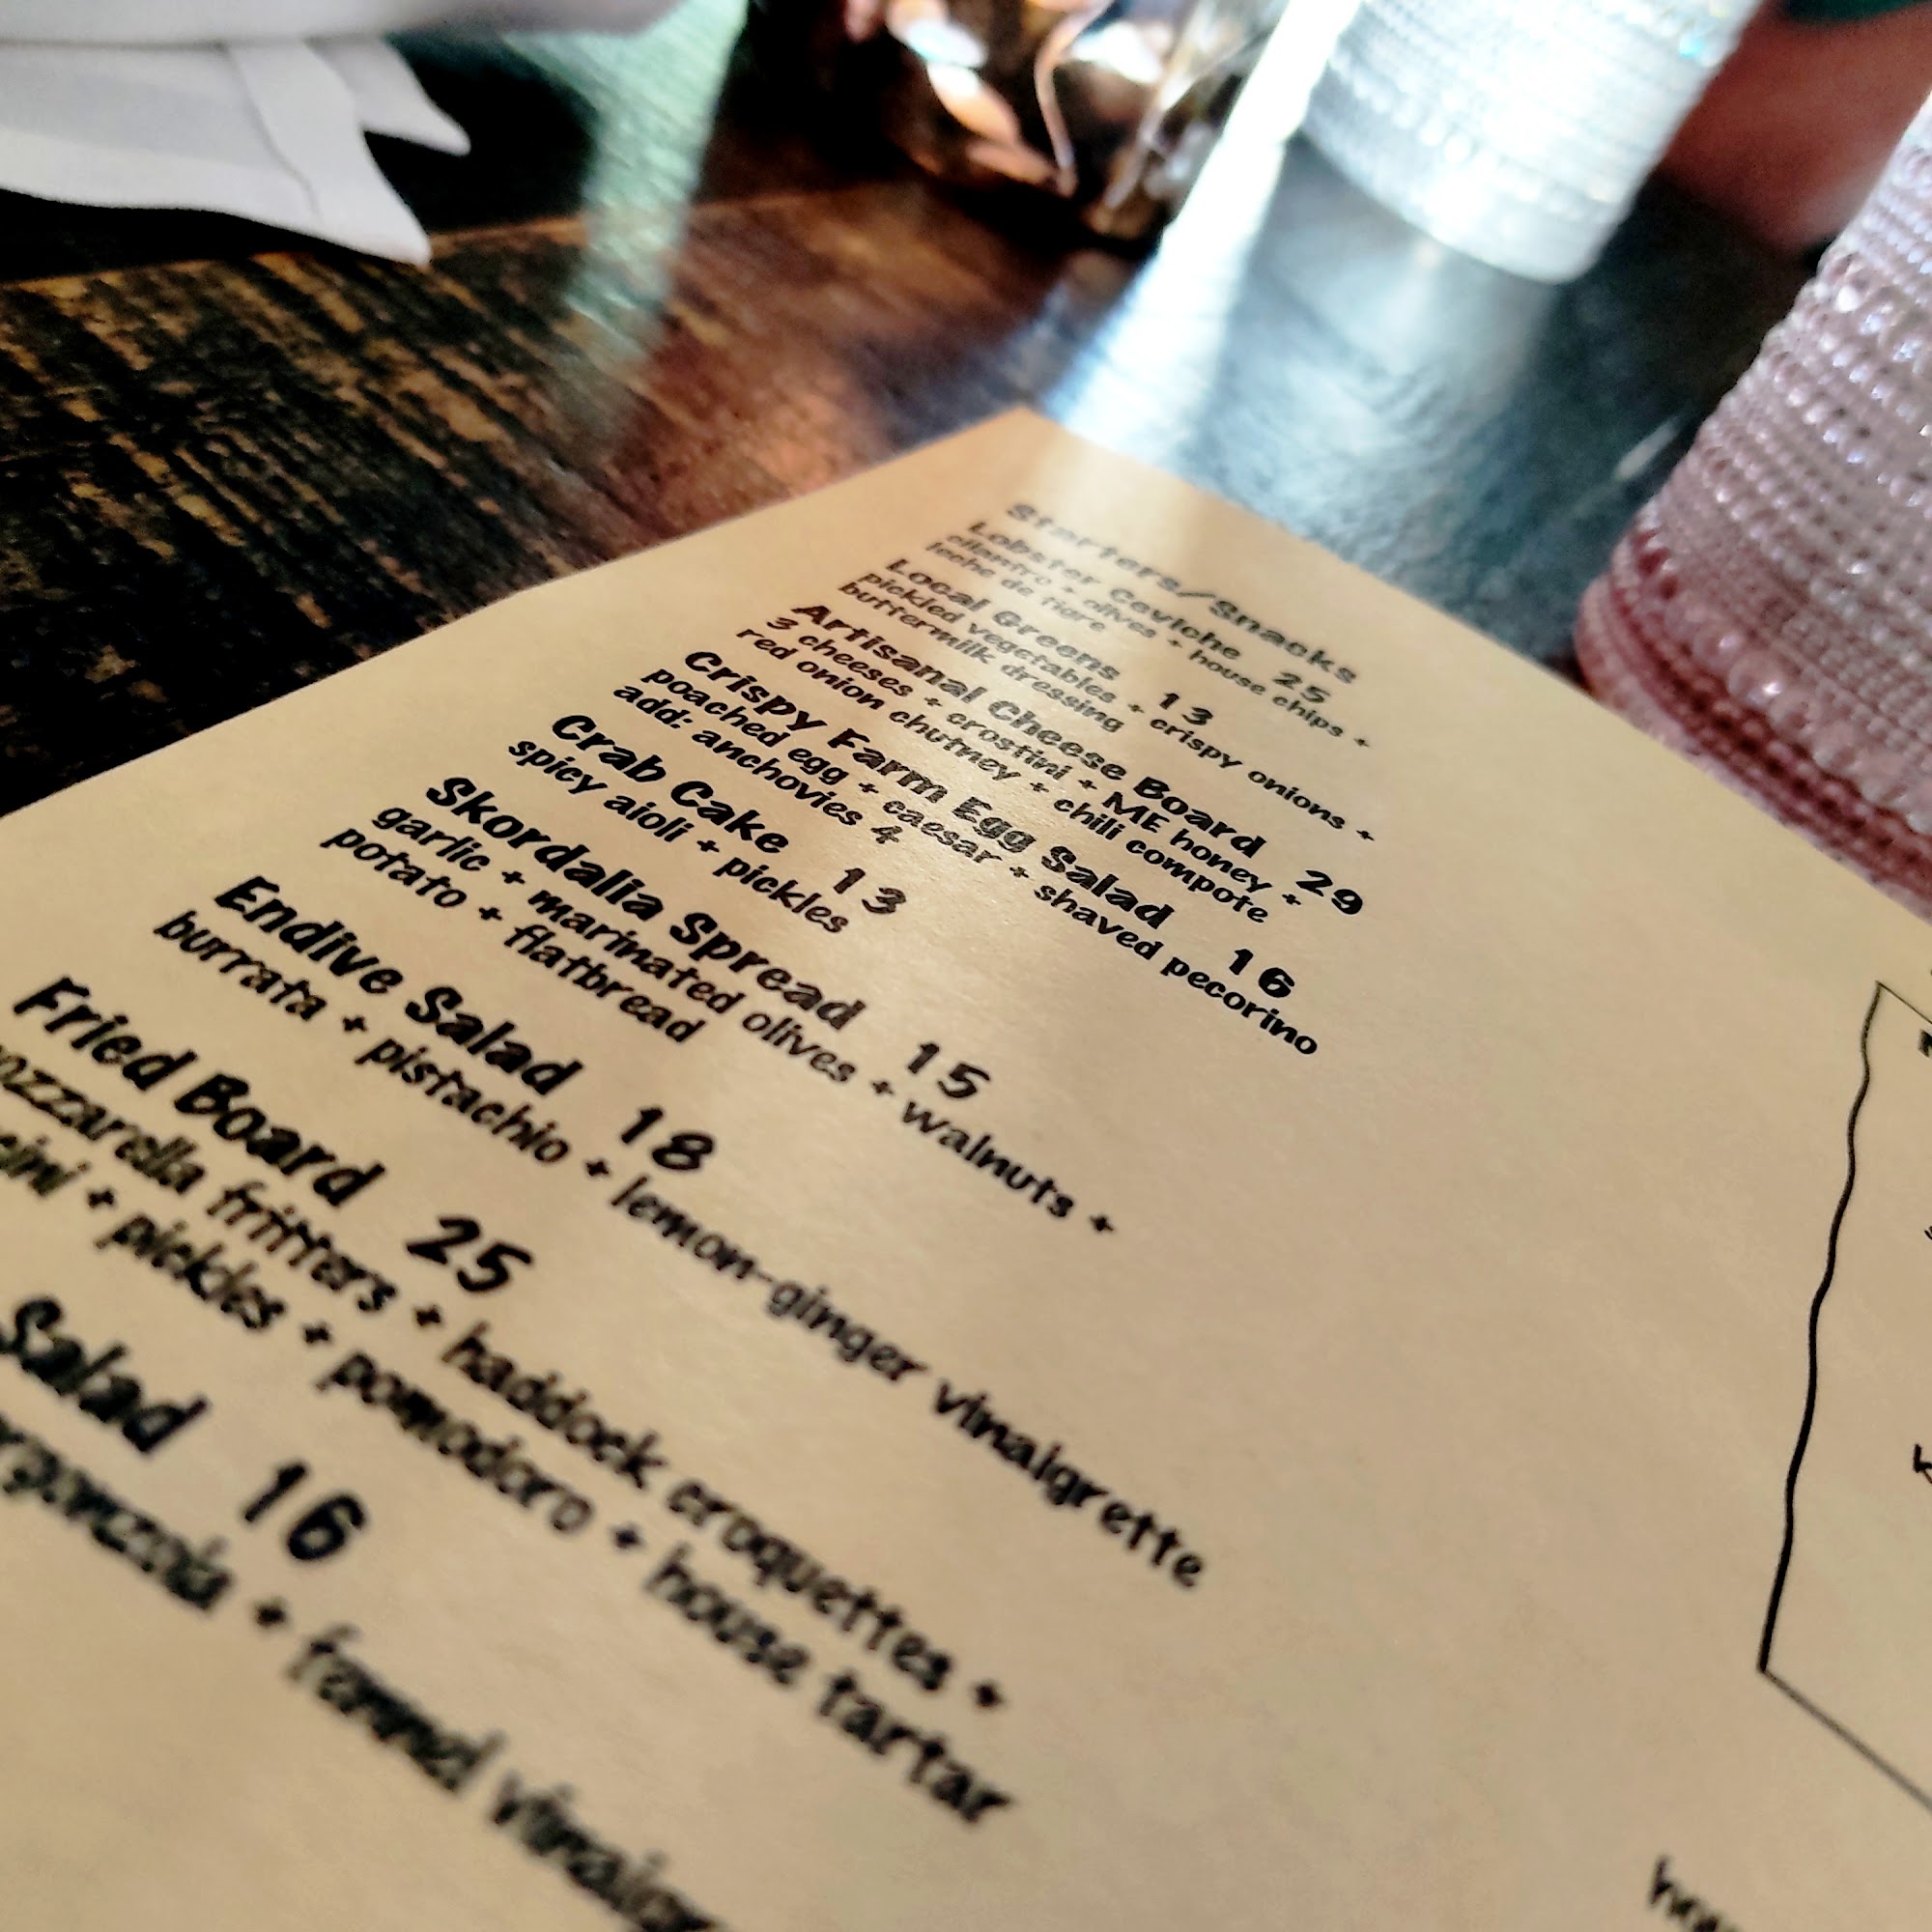 Starters/Snacks
Lobster Ceviche 25
cilantro + olives + house chips +
leche de tigre
Local Greens 13
pickled vegetables + crispy onions +
buttermilk dressing
Artisanal Cheese Board 29
3 cheeses + crostini + ME honey +
red onion chutney + chili compote
Crispy Farm Egg Salad 16
poached egg + caesar + shaved pecorino
add: anchovies 4
Crab Cake 13
spicy aioli + pickles
Skordalia Spread 15
garlic + marinated olives + walnuts +
potato + flatbread
Endive Salad 18
burrata + pistachio + lemon-ginger vinaigrette
Fried Board 25
fritters + haddock croquettes +
+ pickles + pomodoro + house tartar
Salad 16
+ fennel